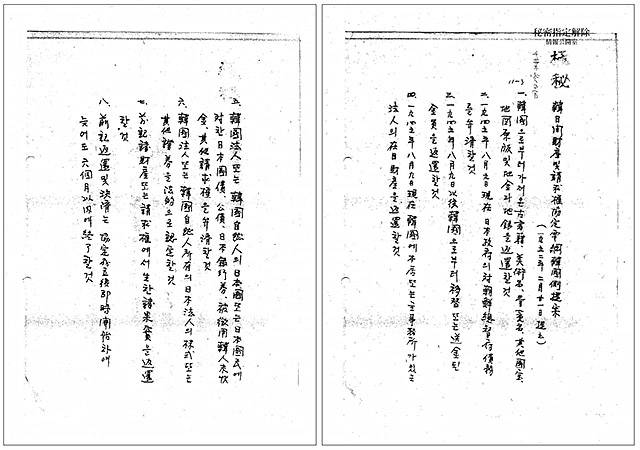 秘密指定解除
情報公開室
極秘
11-3
韓日間財産및請求權協定要綱韓國側提案
一. 韓國으로부터 가져온 古書籍, 美術品, 骨董品, 其他國宝,
地図原版및 地金과 地銀을 返還할것
二. 一九四五年八月九日現在 日本政府의 対朝鮮総督府債務
를 弁済할것
三. 一九四五年八月九日以後 韓國으로부터 移替 또는 送金된
金員을 返還할것
四. 一九四五年八月九日現在 韓國에 本店 또는 主事務所가 있는
法人의 在日財産을 返還할것
五. 韓國法人 또는 韓國自然人의 日本國 또는 日本國民에
対한 日本國債, 公債, 日本銀行券, 被徴用韓人未収
金, 其他請求権을 弁済할것
六. 韓國法人 또는 韓國自然人所有의 日本法人의 株式 또는
其他証券을 法的으로 認定할것
七. 前記諸財産 또는 請求権에서 生한 諸果実을 返還
할것
八. 前記返還및 決済는 協定成立後即時開始하여
늦어도 六個月以内에 終了할것